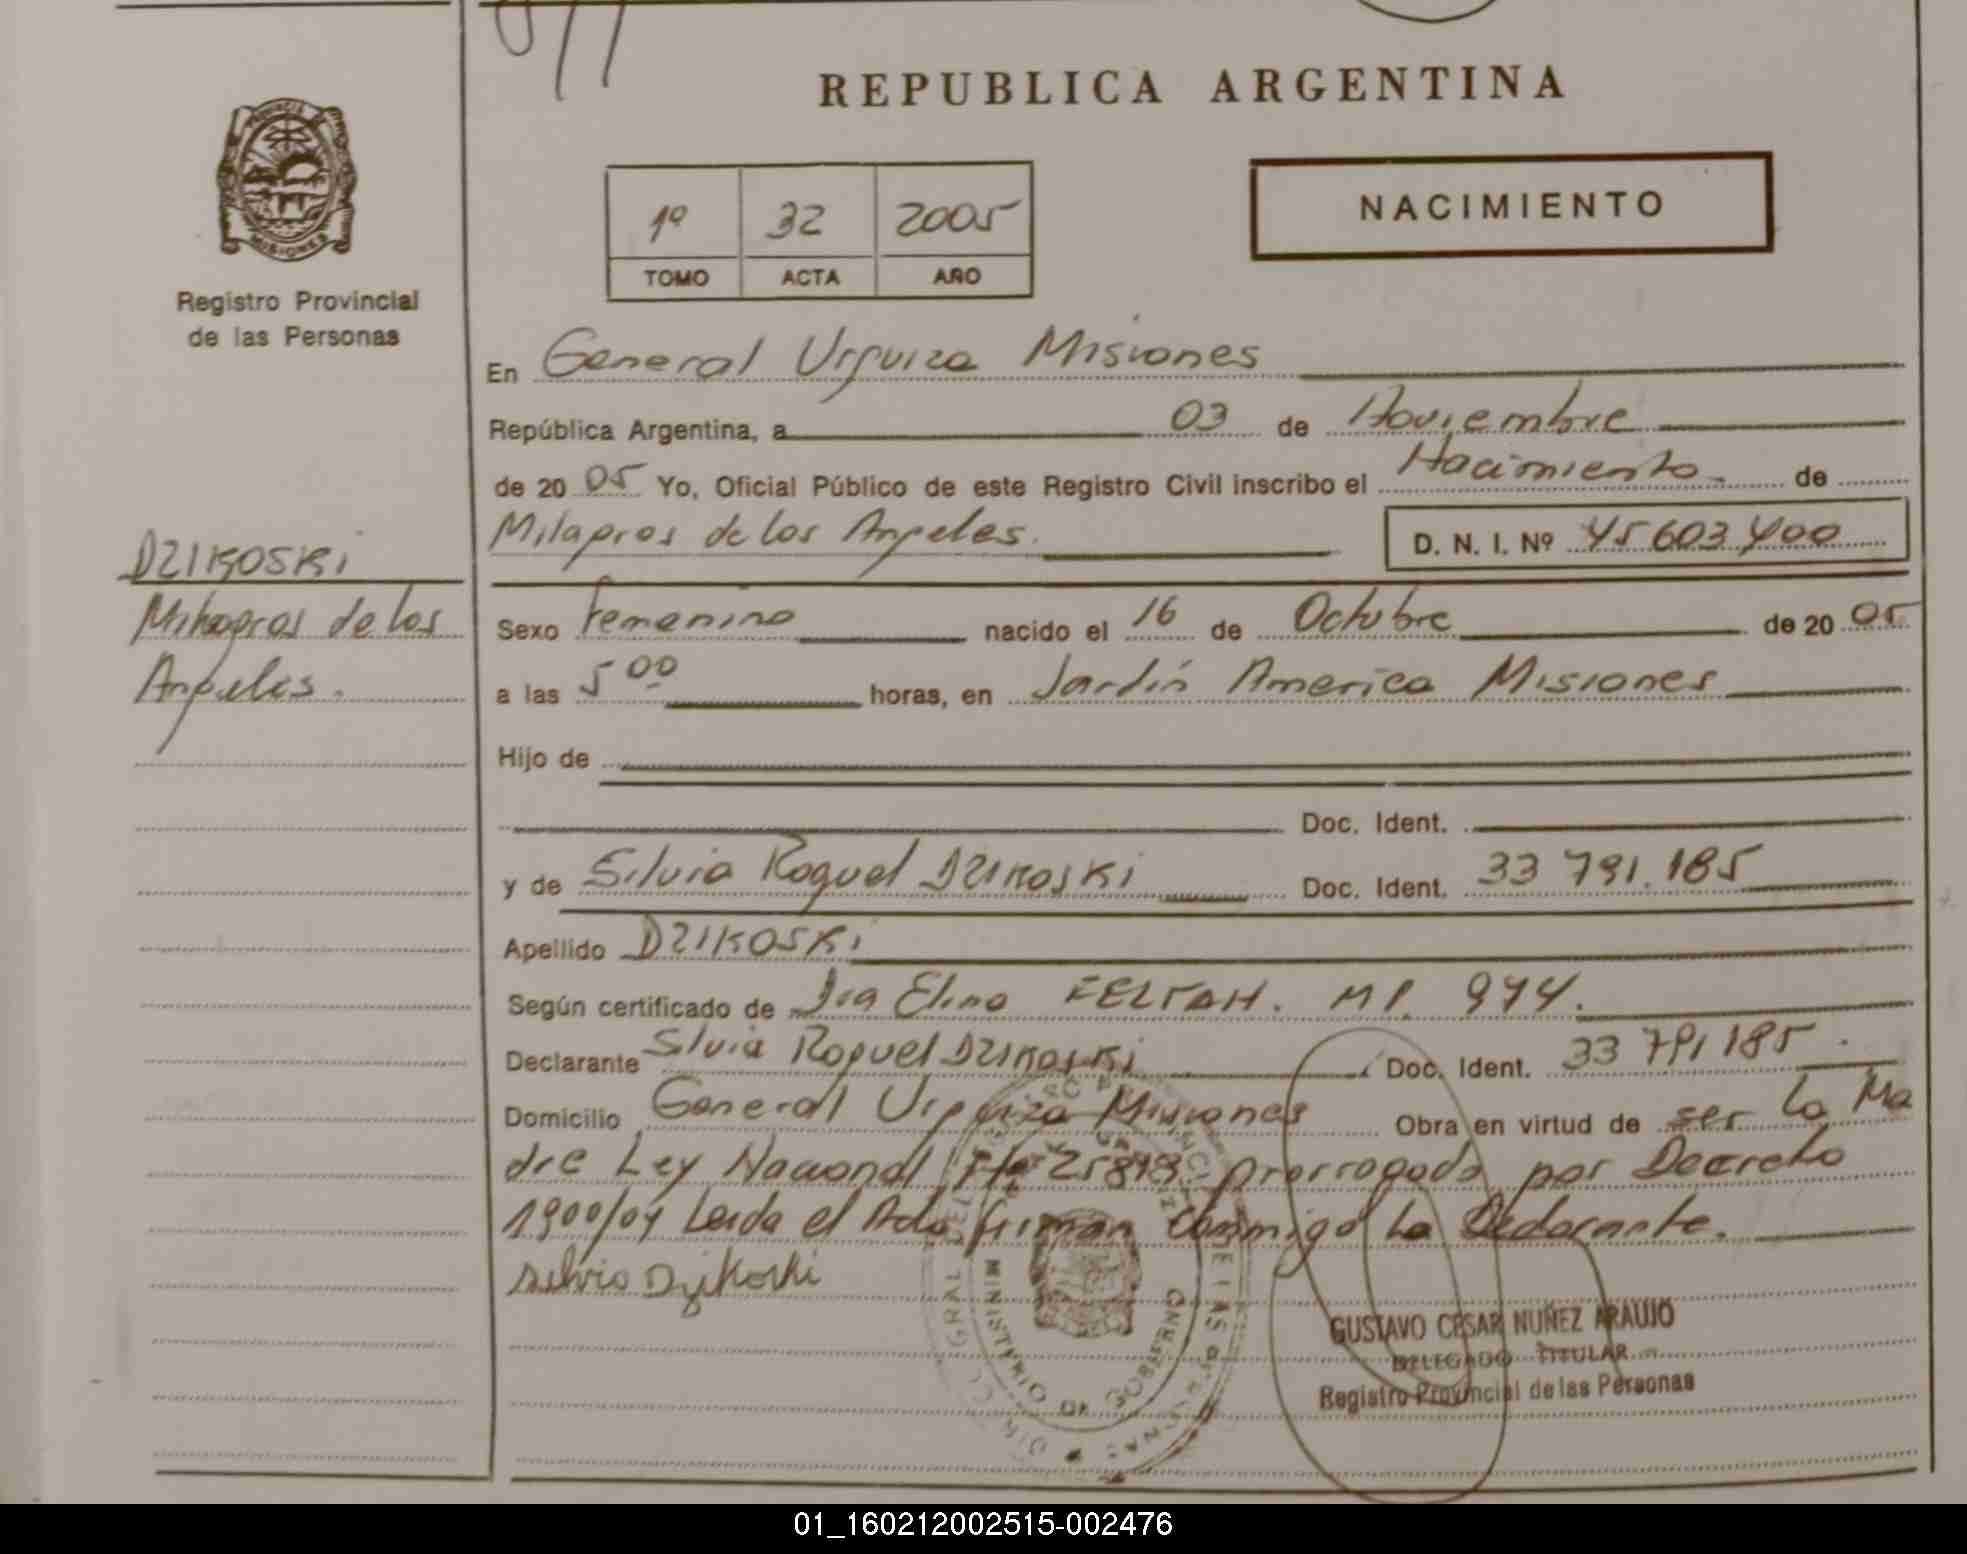 REPUBLICA ARGENTINA
PROVINCIA
MISIONES
Registro Provincial
de las Personas
1º 32 2005
TOMO ACTA AÑO
NACIMIENTO
En General Urquiza Misiones
República Argentina, a 03 de Noviembre
de 20 05 Yo, Oficial Público de este Registro Civil inscribo el Nacimiento de
Milagros de los Angeles. D. N. I. Nº 45603400
DZIKOSKi
Milagros de los
Angeles.
Sexo femenino nacido el 16 de Octubre de 20 05
a las 5 00 horas, en Jardín America Misiones
Hijo de
Doc. Ident.
y de Silvia Raquel DZIKOSKi Doc. Ident. 33 791.185
Apellido DZIKOSKi
Según certificado de Dra Elena MP. 944.
Declarante Silvia Raquel DZIKOSKi Doc. Ident. 33 791 185.
Domicilio General Urquiza Misiones Obra en virtud de ser la Ma
dre Ley Nacional Nº prorrogada por Decreto
1900/04 Leida el Acta firman conmigo la Declarante.
Silvia Dzikoski
MINISTERIO DE GOBIERNO
GUSTAVO CESAR NUÑEZ ARAUJO
DELEGADO TITULAR
Registro Provincial de las Personas
01_160212002515-002476